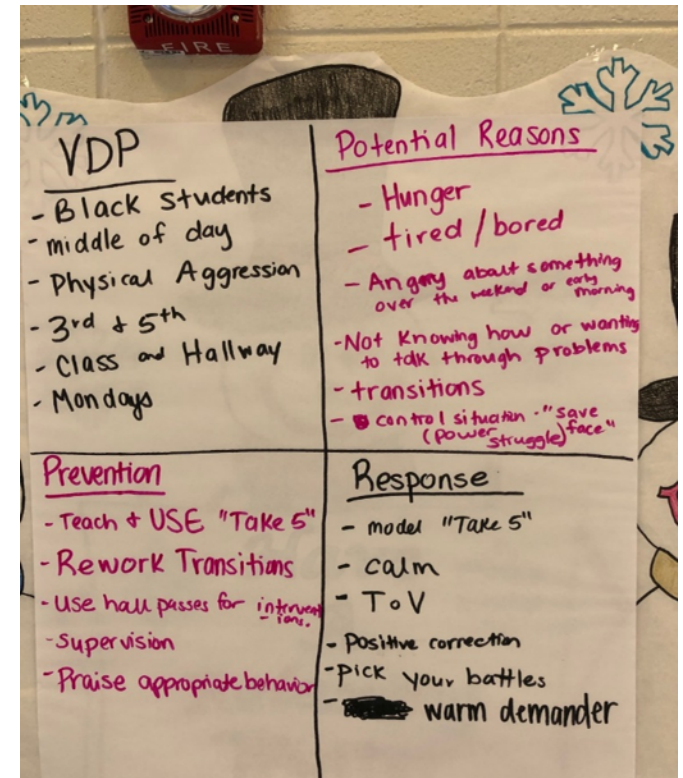 FIRE
VDP
- Black Students
- middle of day
- Physical Aggression
- 3rd + 5th
- Class and Hallway
- Mondays
Potential Reasons
- Hunger
- tired / bored
- Angery about something
over the weekend or early
morning
- Not knowing how or wanting
to talk through problems
- transitions
- control situation - "save
(power struggle) face"
Prevention
- Teach + USE "Take 5"
- Rework Transitions
- Use hall passes for intervent
ions.
- Supervision
- Praise appropriate behavior
Response
- model "Take 5"
- calm
- ToV
- Positive correction
- pick your battles
- warm demander